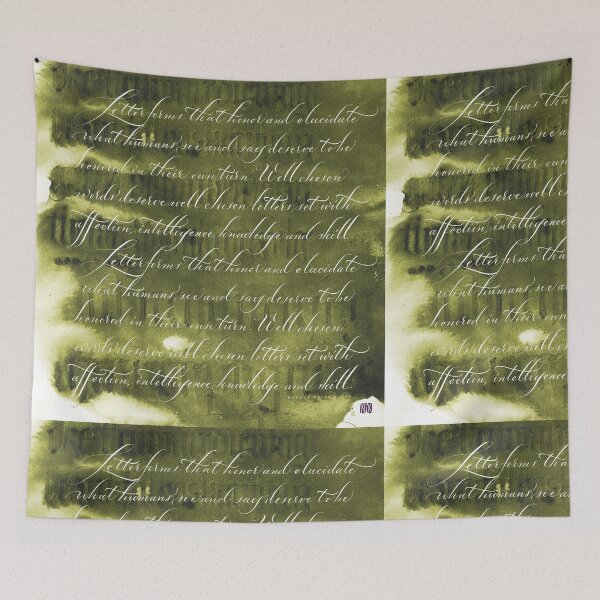 Letter forms that honor and elucidate
what humans, see and say deserve to be
honored in their own turn. Well chosen
words deserve well chosen letters set with
affection, intelligence, knowledge and skill.
Letter forms that honor and elucidate
what humans, see and say deserve to be
honored in their own turn. Well chosen
words deserve well chosen letters set with
affection, intelligence, knowledge and skill.
Letter forms tha
what humans, see a
honored in their o
words deserve well c
affection, intelligence
Letter forms tha
what humans, see a
honored in their o
words deserve well c
affection, intelligence
Letter forms that honor and elucidate
what humans, see and say deserve to be
honored in their own turn. Well chosen
Letter forms tha
what humans, see a